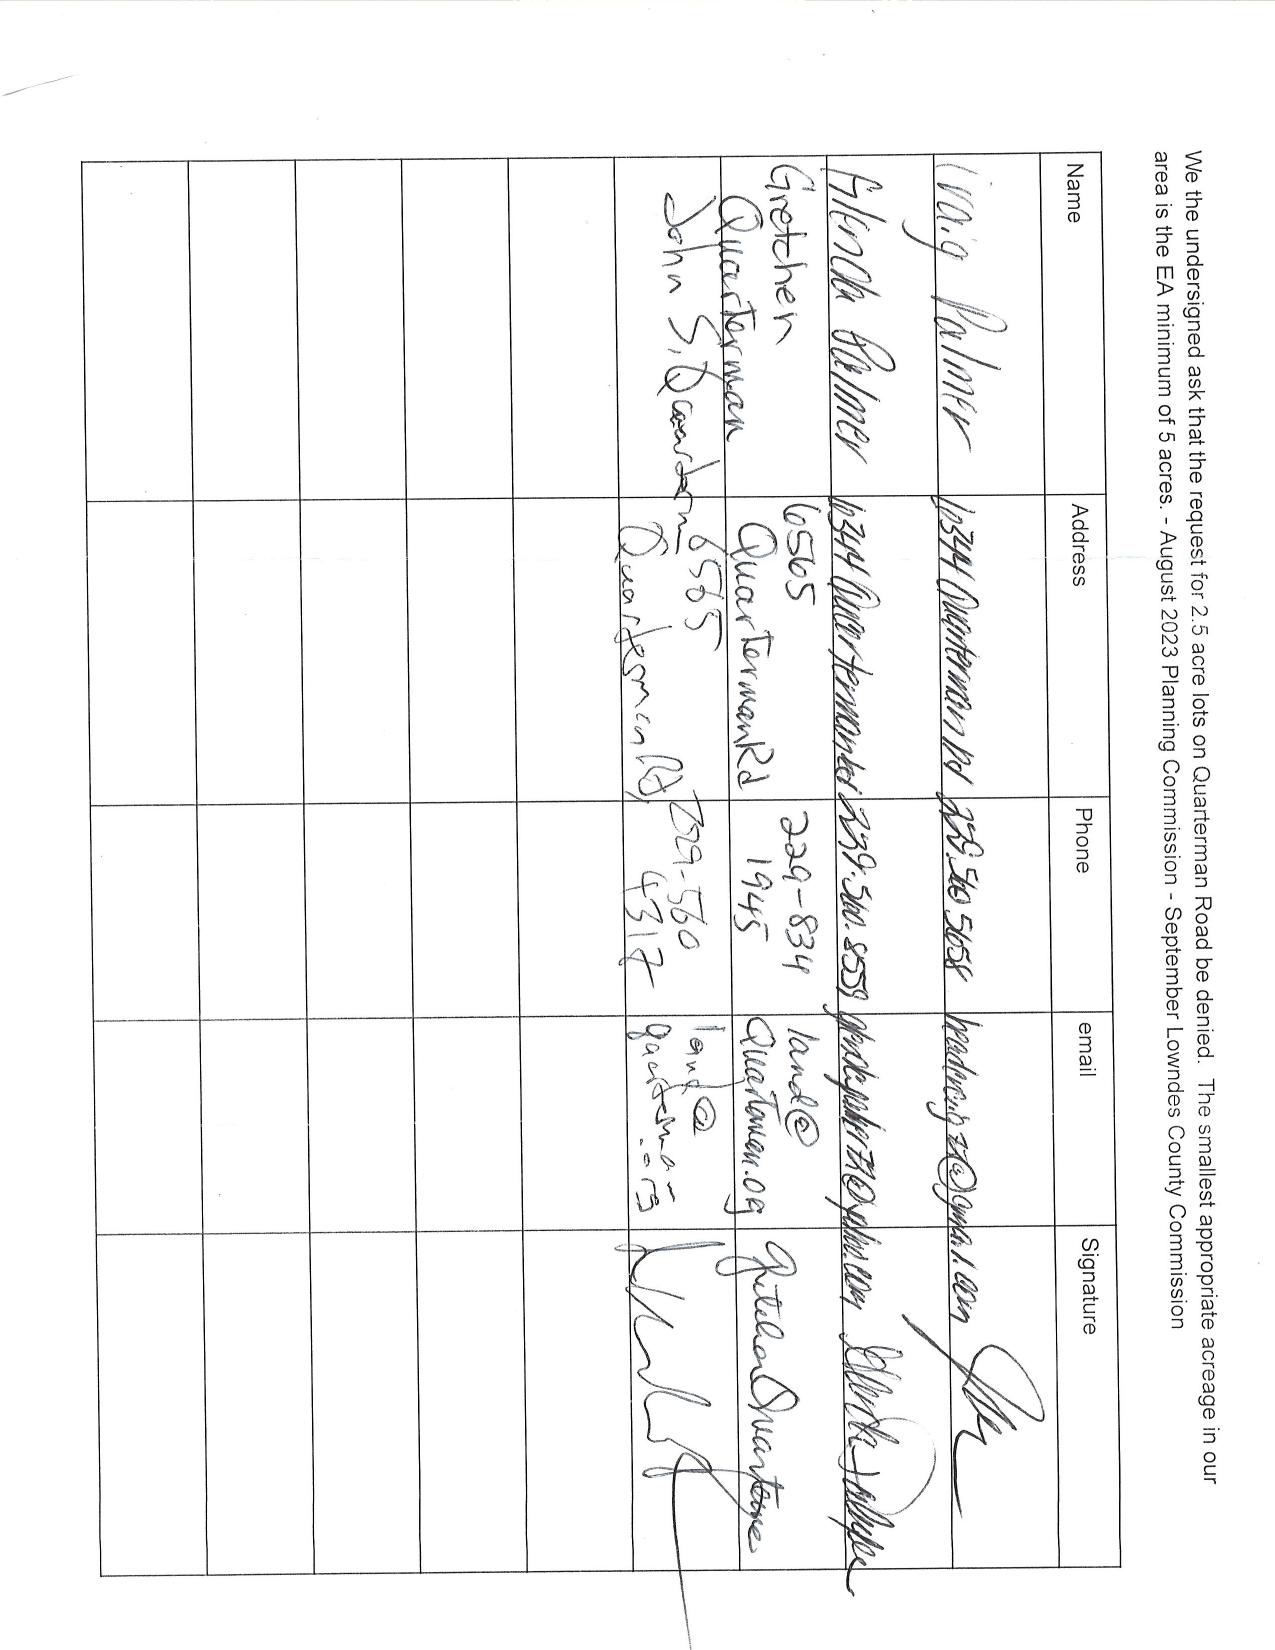 We the undersigned ask that the request for 2.5 acre lots on Quarterman Road be denied. The smallest appropriate acreage in our
area is the EA minimum of 5 acres. - August 2023 Planning Commission - September Lowndes County Commission
Name Address Phone email Signature
Craig Palmer 6344 Quarterman Rd 229.560.5658
Glenda Palmer 6344 Quarterman Rd 229.560.8559
Gretchen 6565 229-834 land@
Quarterman Quarterman Rd 1945 Quarterman.org Gretchen Quarterman
John S. Quarterman 6565 229-560 land@
Quarterman Rd, 4317 quarterman.org